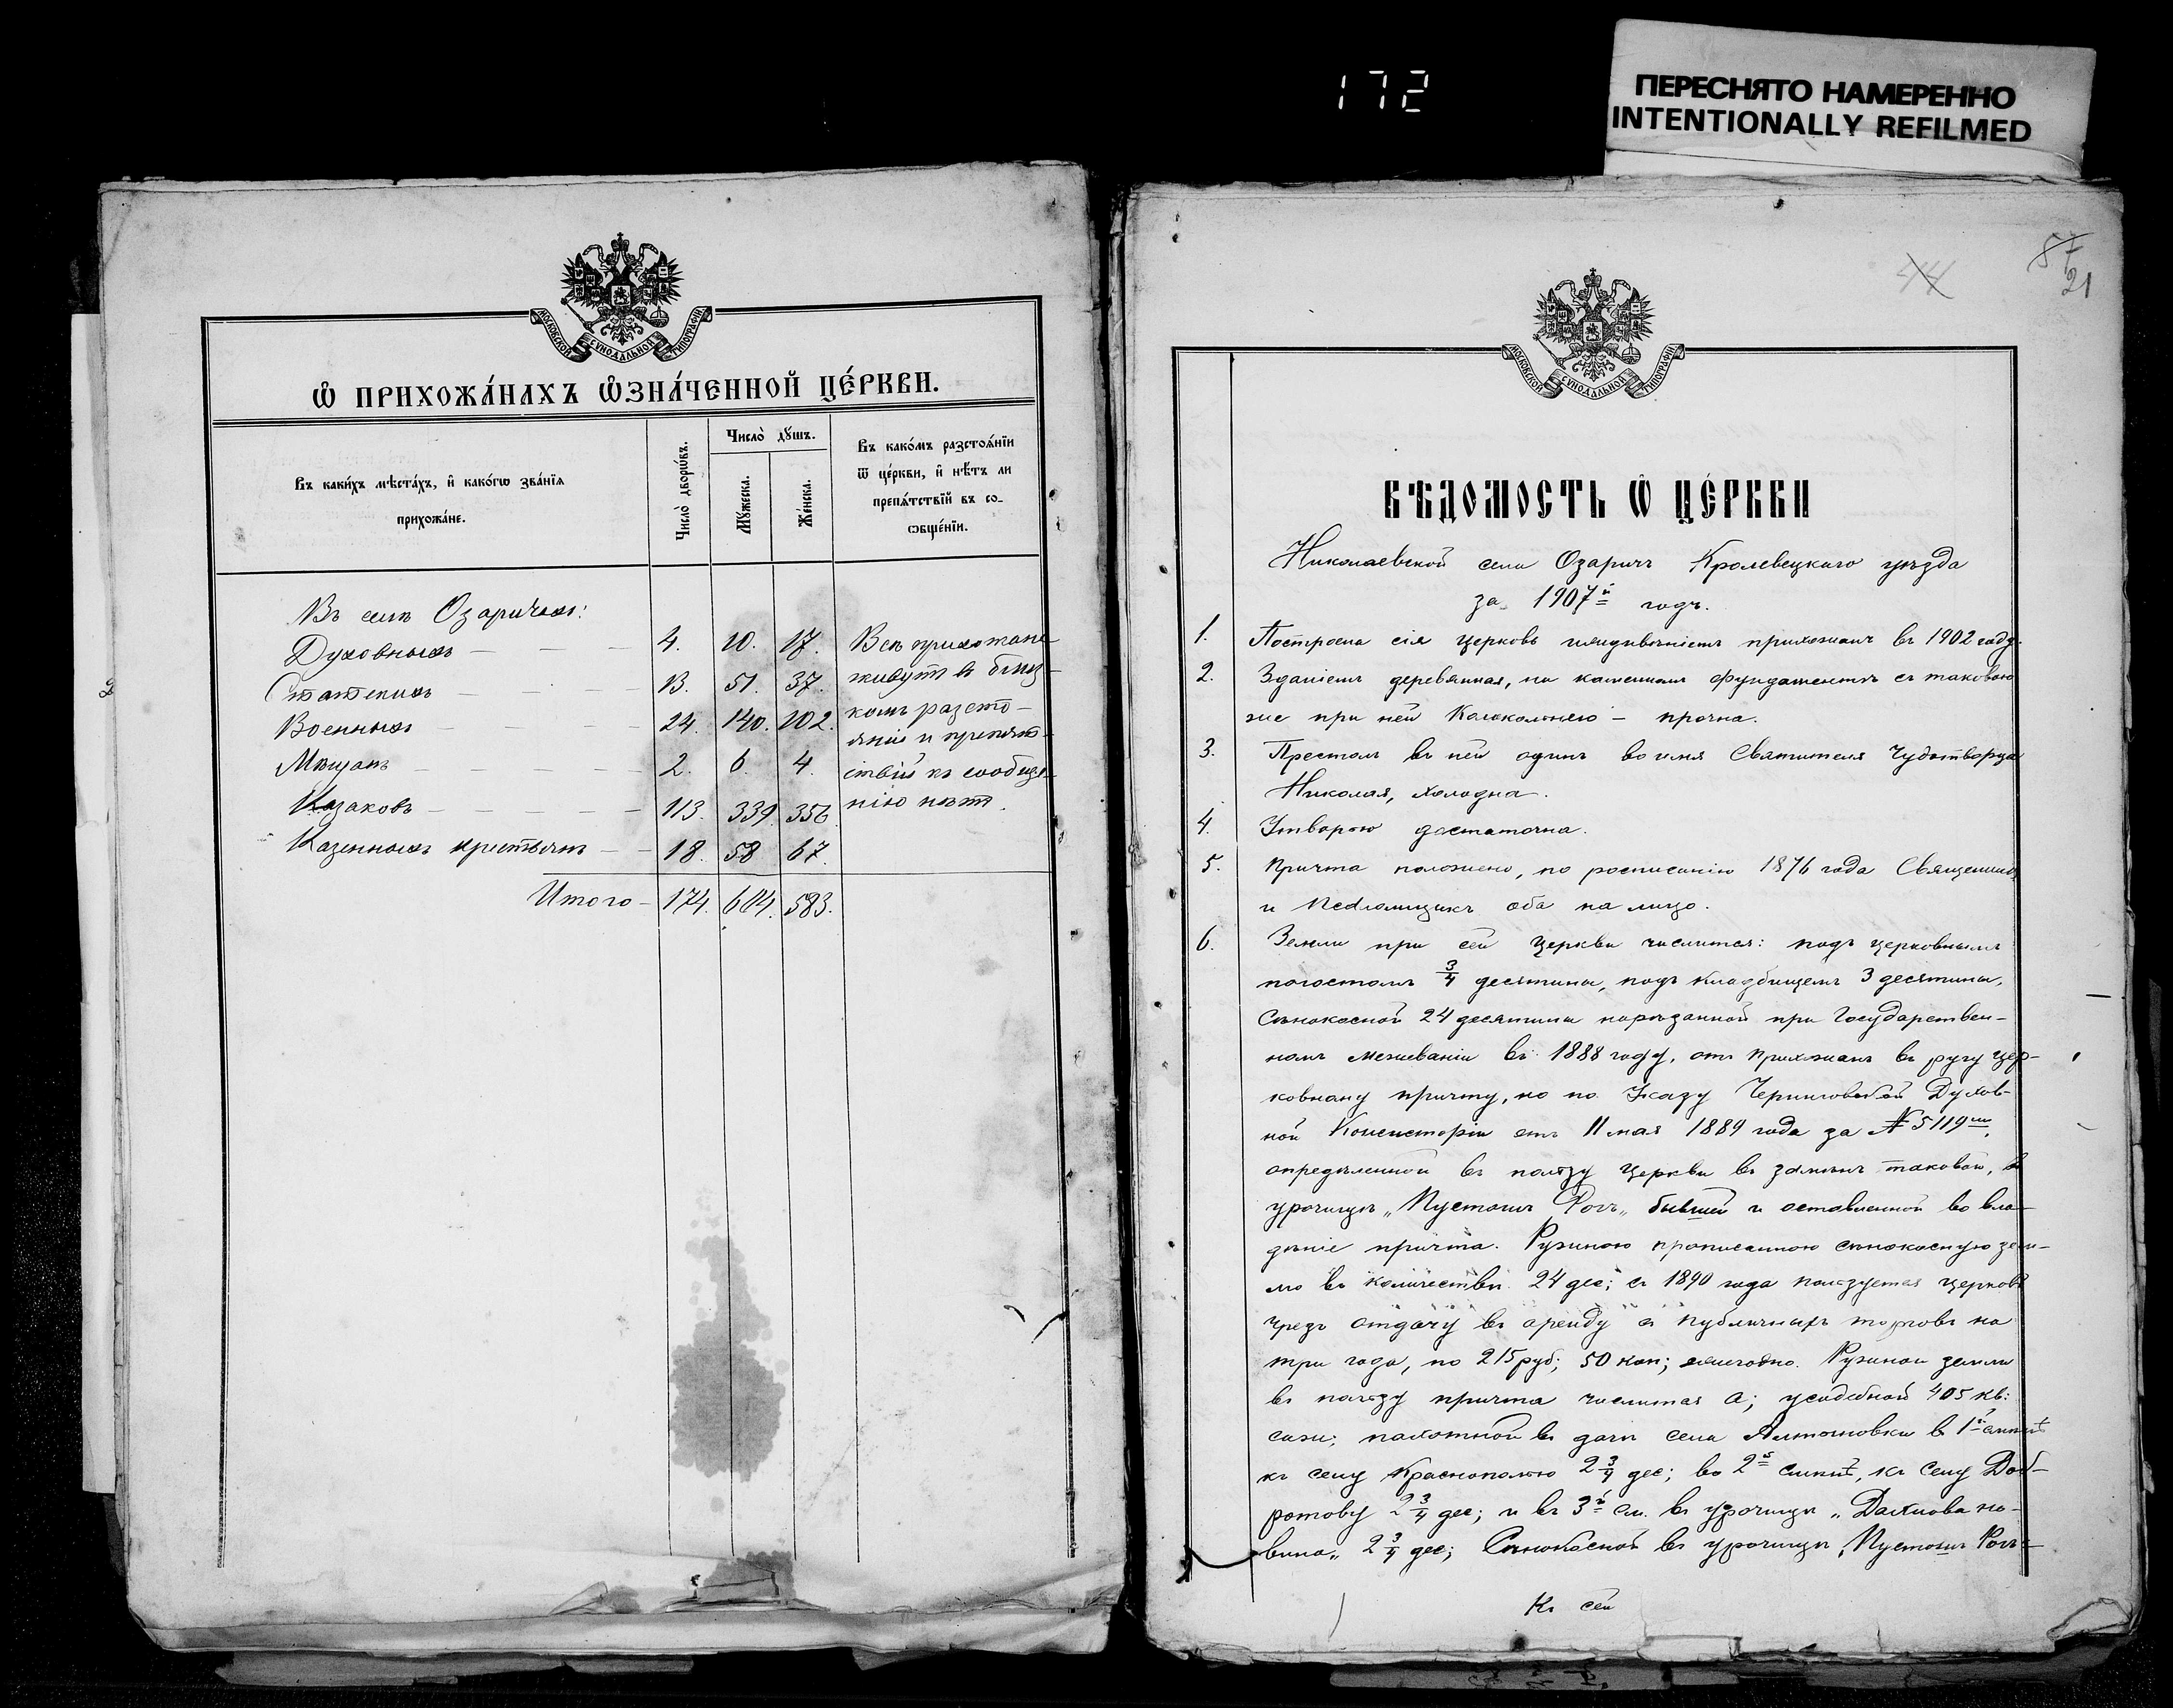 172
ПЕРЕСНЯТО НАМЕРЕННО
INTENTIONALLY REFILMED
МОСКОВСКОЙ СѴНОДАЛЬНОЙ ТИПОГРАФІИ
Ѽ ПРИХОЖА́НАХЪ Ѽ҆ЗНА́ЧЕННОЙ ЦЕ́РКВИ.
Въ каки́хъ мѣста́хъ, и҆ како́гѡ зва́нїѧ
прихожа́не.
Число̀ дворѡ́въ.
Число̀ дꙋ́шъ.
Мꙋ́жеска.
Же́нска.
Въ како́мъ разстоѧ́нїи
ѿ це́ркви, и҆ нѣ́тъ ли
препѧ́тствїй въ со-
ѻбще́нїи.
Въ селѣ Озаричахъ:
Духовныхъ — 4. 10. 17. Всѣ прихожане
Статскихъ — 13. 51. 37. живутъ въ близ-
Военныхъ 24. 140. 102. комъ разсто-
яніи и препятст-
Мѣщанъ — 2. 6. 4. ствій къ сообще-
Казаковъ — 113. 339. 356. нію нѣтъ.
Казенныхъ крестьянъ — 18. 58 67.
Итого — 174. 604. 583.
44
57
21
МОСКОВСКОЙ СѴНОДАЛЬНОЙ ТИПОГРАФІИ
ВѢДОМОСТЬ Ѽ ЦЕ́РКВИ
Николаевской села Озаричъ Кролевецкаго уѣзда
за 1907й годъ.
1. Построена сія церковь иждивеніемъ прихожанъ въ 1902 году.
2. Зданіемъ деревянная, на каменномъ фундаментѣ съ таковою
же при ней колокольнею — прочна.
3. Престолъ въ ней одинъ во имя Святителя Чудотворца
Николая, холодна.
4. Утварью достаточна.
5. Причта положено, по росписанію 1876 года Священникъ
и Псаломщикъ оба на лицо.
6. Земли при сей церкви числится: подъ церковнымъ
погостомъ 3/4 десятины, подъ кладбищемъ 3 десятины,
Сѣнокосной 24 десятины нарѣзанной при Государствен-
номъ межеваніи въ 1888 году, отъ прихожанъ въ ругу цер-
ковному причту, но по Указу Черниговской Духов-
ной Консисторіи отъ 11 мая 1889 года за № 5119мъ,
опредѣленной въ пользу Церкви въ замѣнъ таковой, въ
урочищѣ „Пустошъ Рогъ„ бывшей и оставленной во вла-
дѣніе причта. Ружною прописанною сѣнокосную зем-
лю въ количествѣ 24 дес; съ 1890 года пользуется церковь
чрезъ отдачу въ аренду съ публичныхъ торговъ на
три года, по 215 руб; 50 коп; ежегодно. Ружной земли
въ пользу причта числится а; усадебной 405 кв:
саж; пахотной въ дачѣ села Алтыновки въ 1й смѣнѣ
къ селу Краснополью 2 3/4 дес; во 2й смѣнѣ, къ селу Доб-
ротову 2 3/4 дес; и въ 3й см. въ урочищѣ „ но-
вина„ 2 3/4 дес; Сѣнокосной въ урочищѣ „Пустошъ Рогъ
Къ сей